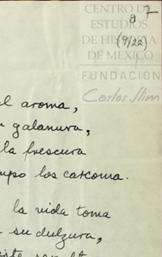 CENTRO DE
ESTUDIOS
DE HISTORIA
DE MÉXICO
FUNDACIÓN
Carlos Slim
7
(9/22)
el aroma,
galanura,
la frescura
los carcoma.
la vida toma
su dulzura,